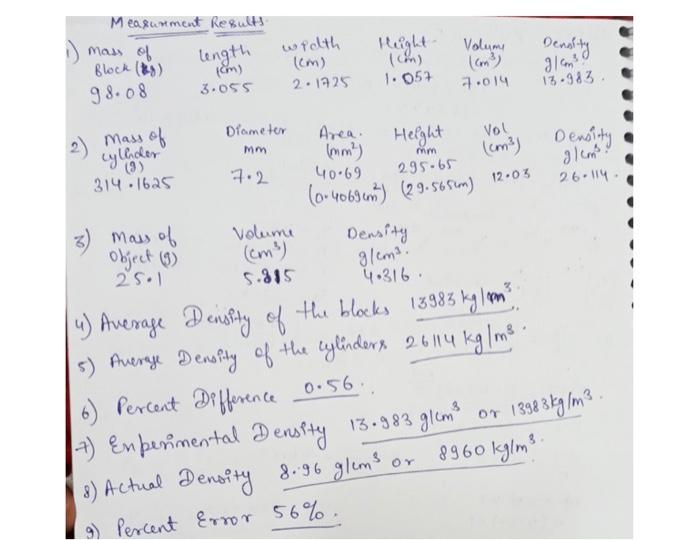 Measurment Results.
1) Mass of Length width Height Volume Density
Block (kg) (cm) (cm) (cm) (cm³) g/cm³.
98.08 3.055 2.1725 1.057 7.014 13.983.
2) Mass of Diameter Area. Height Vol Density
cylinder mm (mm²) mm (cm³) g/cm³.
(g) 40.69 295.65
314.1625 7.2 (0.4069cm²) (29.565cm) 12.03 26.114.
3) Mass of Volume Density
Object (g) (cm³) g/cm³.
25.1 5.815 4.316.
4) Average Density of the blocks 13983 kg/m³.
5) Average Density of the cylinders 26114 kg/m³.
6) Percent Difference 0.56.
7) Experimental Density 13.983 g/cm³ or 13983kg/m³.
8) Actual Density 8.96 g/cm³ or 8960 kg/m³.
9) Percent Error 56%.